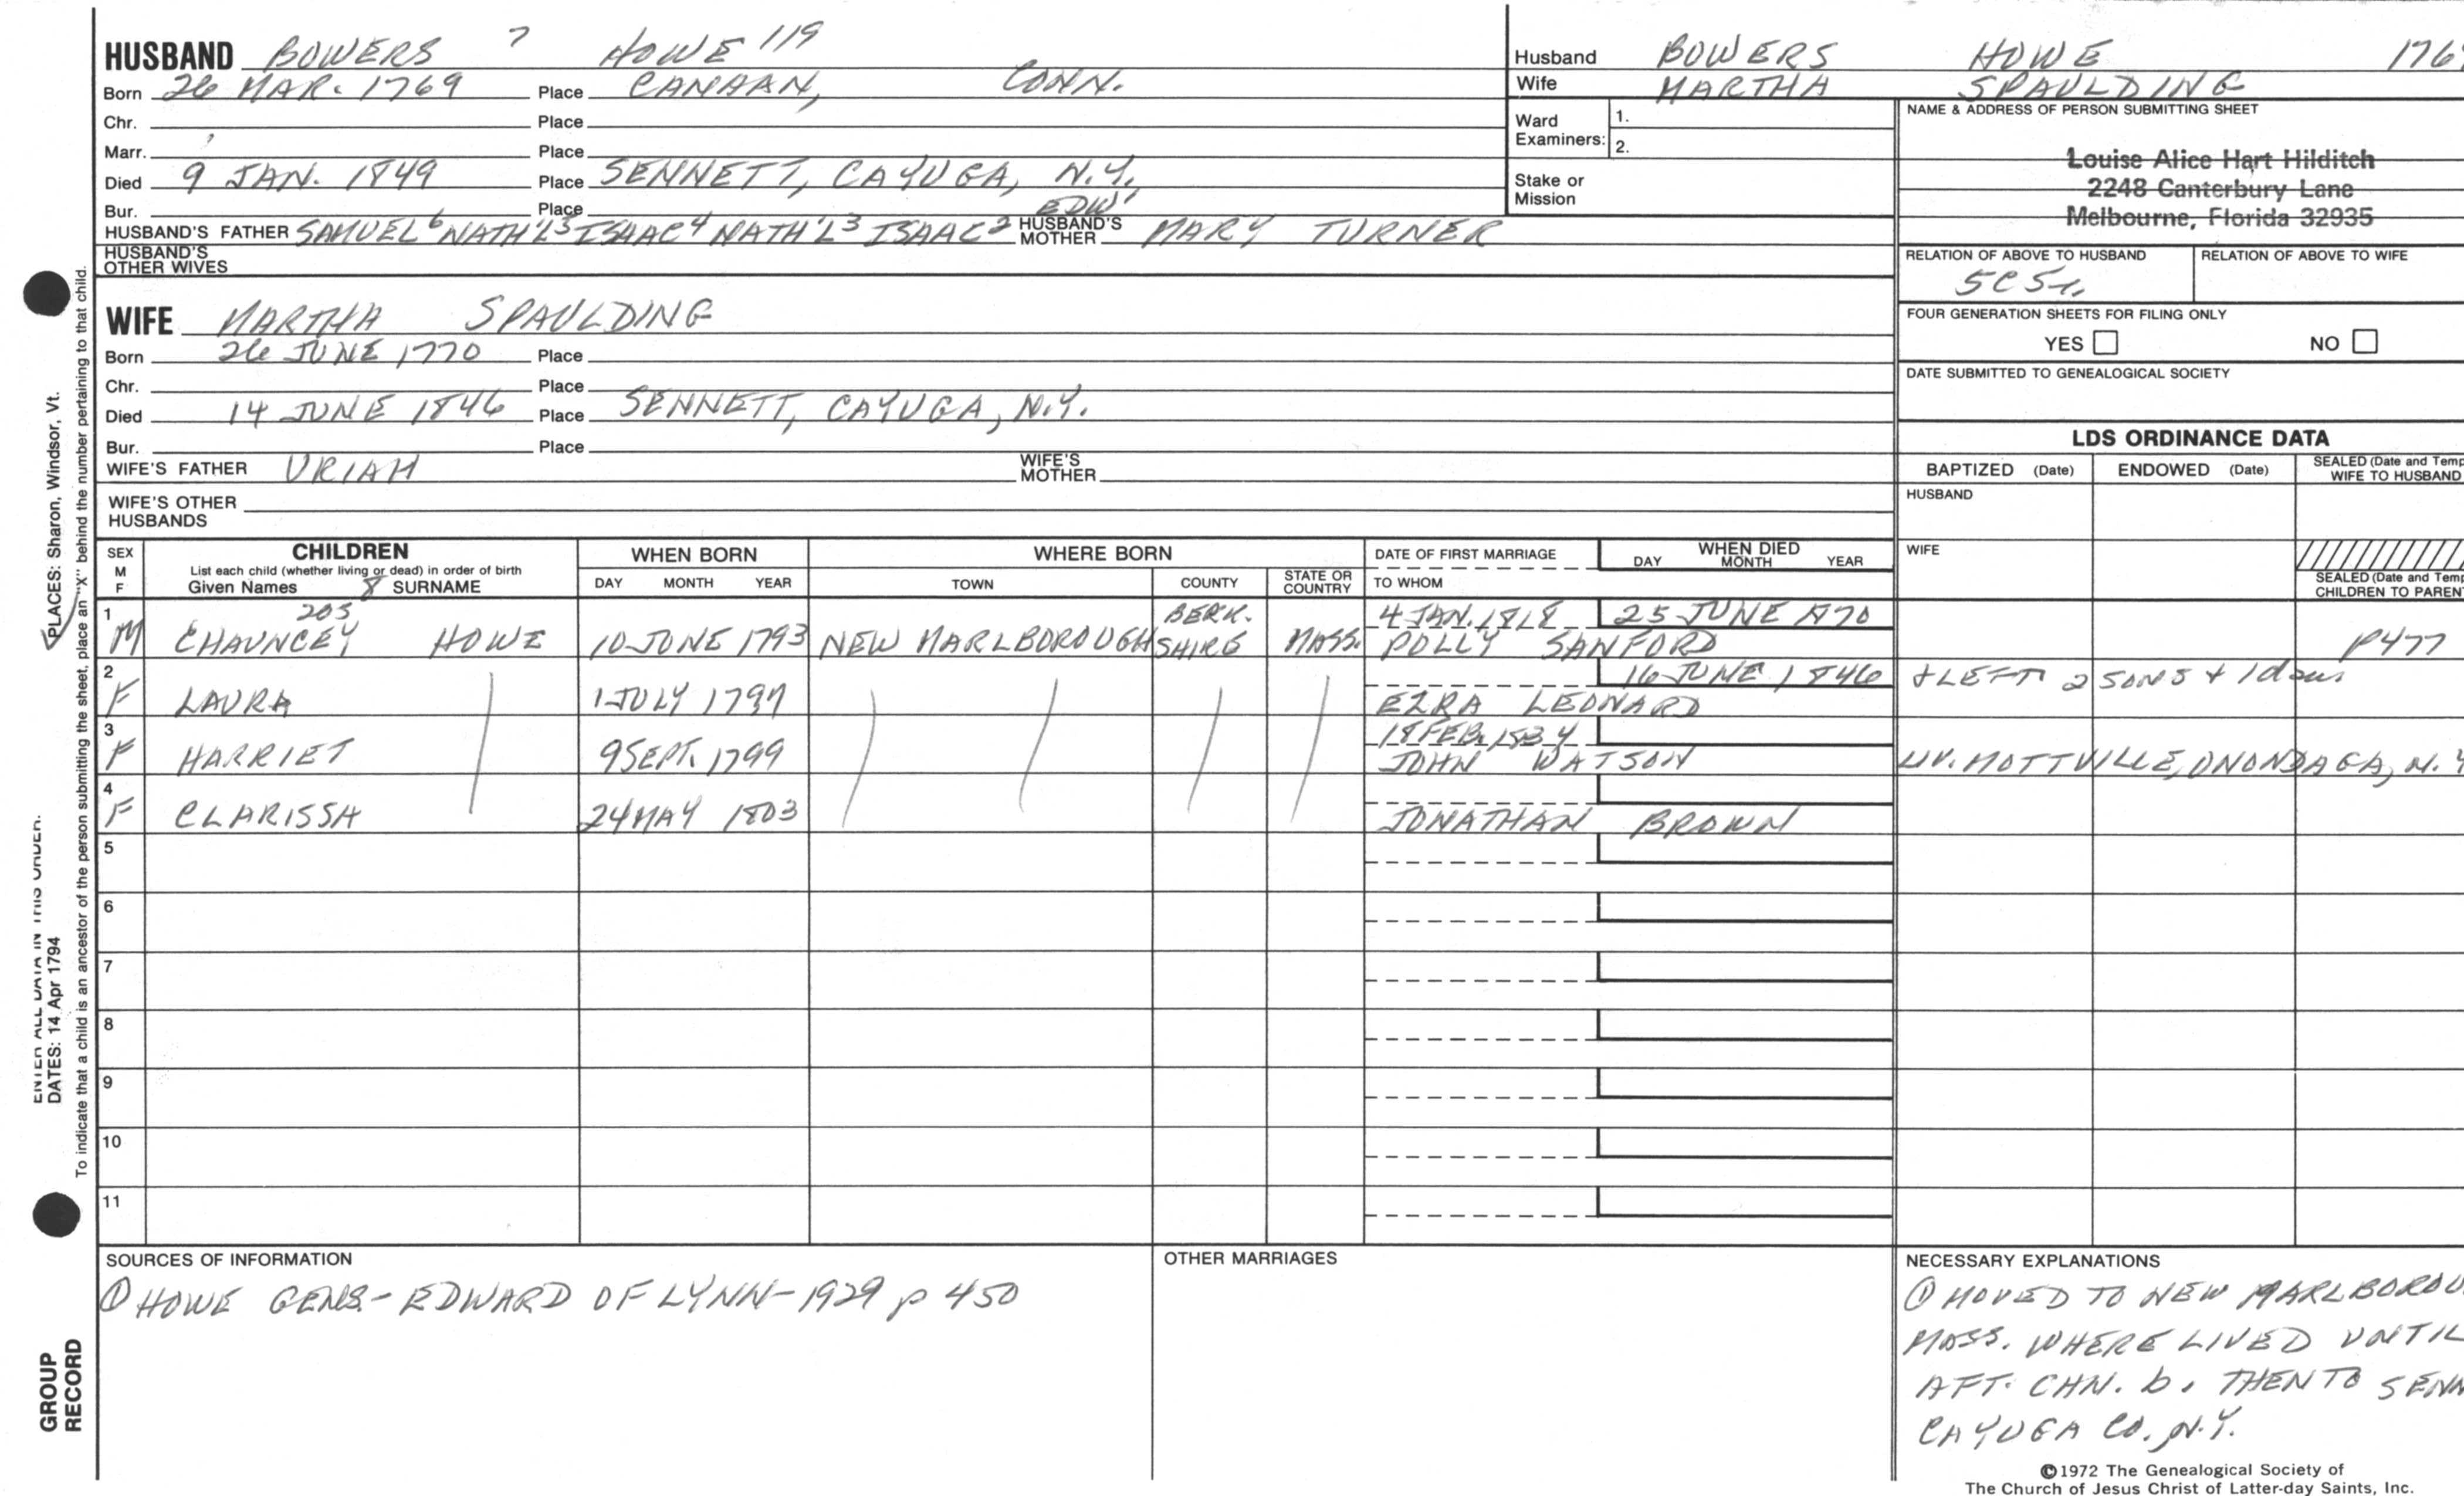 HUSBAND BOWERS 7 HOWE 119
Born 26 MAR. 1769 Place CANAAN, CONN.
Chr. Place
Marr. Place
Died 9 JAN. 1849 Place SENNETT, CAYUGA, N.Y.
Bur. Place
HUSBAND'S FATHER SAMUEL 6 NATH'L 5 ISAAC 4 NATH'L 3 ISAAC 2 EDW' HUSBAND'S MOTHER MARY TURNER
HUSBAND'S OTHER WIVES
WIFE MARTHA SPAULDING
Born 26 JUNE 1770 Place
Chr. Place
Died 14 JUNE 1846 Place SENNETT, CAYUGA, N.Y.
Bur. Place
WIFE'S FATHER URIAH WIFE'S MOTHER
WIFE'S OTHER HUSBANDS
Husband BOWERS HOWE
Wife MARTHA SPAULDING
Ward Examiners: 1.
2.
Stake or Mission
NAME & ADDRESS OF PERSON SUBMITTING SHEET
Louise Alice Hart Hilditch
2248 Canterbury Lane
Melbourne, Florida 32935
RELATION OF ABOVE TO HUSBAND RELATION OF ABOVE TO WIFE
FOUR GENERATION SHEETS FOR FILING ONLY
YES NO
DATE SUBMITTED TO GENEALOGICAL SOCIETY
LDS ORDINANCE DATA
BAPTIZED (Date) ENDOWED (Date) SEALED (Date and Temp
WIFE TO HUSBAND
HUSBAND
WIFE
SEALED (Date and Temp
CHILDREN TO PAREN
SEX M F CHILDREN WHEN BORN WHERE BORN DATE OF FIRST MARRIAGE WHEN DIED
List each child (whether living or dead) in order of birth
Given Names 8 SURNAME DAY MONTH YEAR TOWN COUNTY STATE OR COUNTRY TO WHOM DAY MONTH YEAR
1 M CHAUNCEY 205 HOWE 10 JUNE 1793 NEW MARLBOROUGH BERK. SHIRE MASS. 4 JAN. 1818 25 JUNE 1870
POLLY SANFORD P477
2 F LAURA 1 JULY 1797 16 JUNE 1846 + LEFT 2 SONS + 1 dau.
EZRA LEONARD
3 F HARRIET 9 SEPT. 1799 18 FEB. 1834
JOHN WATSON LIV. MOTTVILLE, ONONDAGA, N.Y
4 F CLARISSA 24 MAY 1803
JONATHAN BROWN
5
6
7
8
9
10
11
SOURCES OF INFORMATION
① HOWE GENS.- EDWARD OF LYNN - 1929 p 450
OTHER MARRIAGES
NECESSARY EXPLANATIONS
① MOVED TO NEW MARLBOROU
MASS. WHERE LIVED UNTIL
AFT. CHN. b. THEN TO SENN
CAYUGA CO. N.Y.
©1972 The Genealogical Society of
The Church of Jesus Christ of Latter-day Saints, Inc.
PLACES: Sharon, Windsor, Vt.
ENTER ALL DATA IN THIS ORDER.
DATES: 14 Apr 1794
To indicate that a child is an ancestor of the person submitting the sheet, place an "X" behind the number pertaining to that child.
GROUP
RECORD